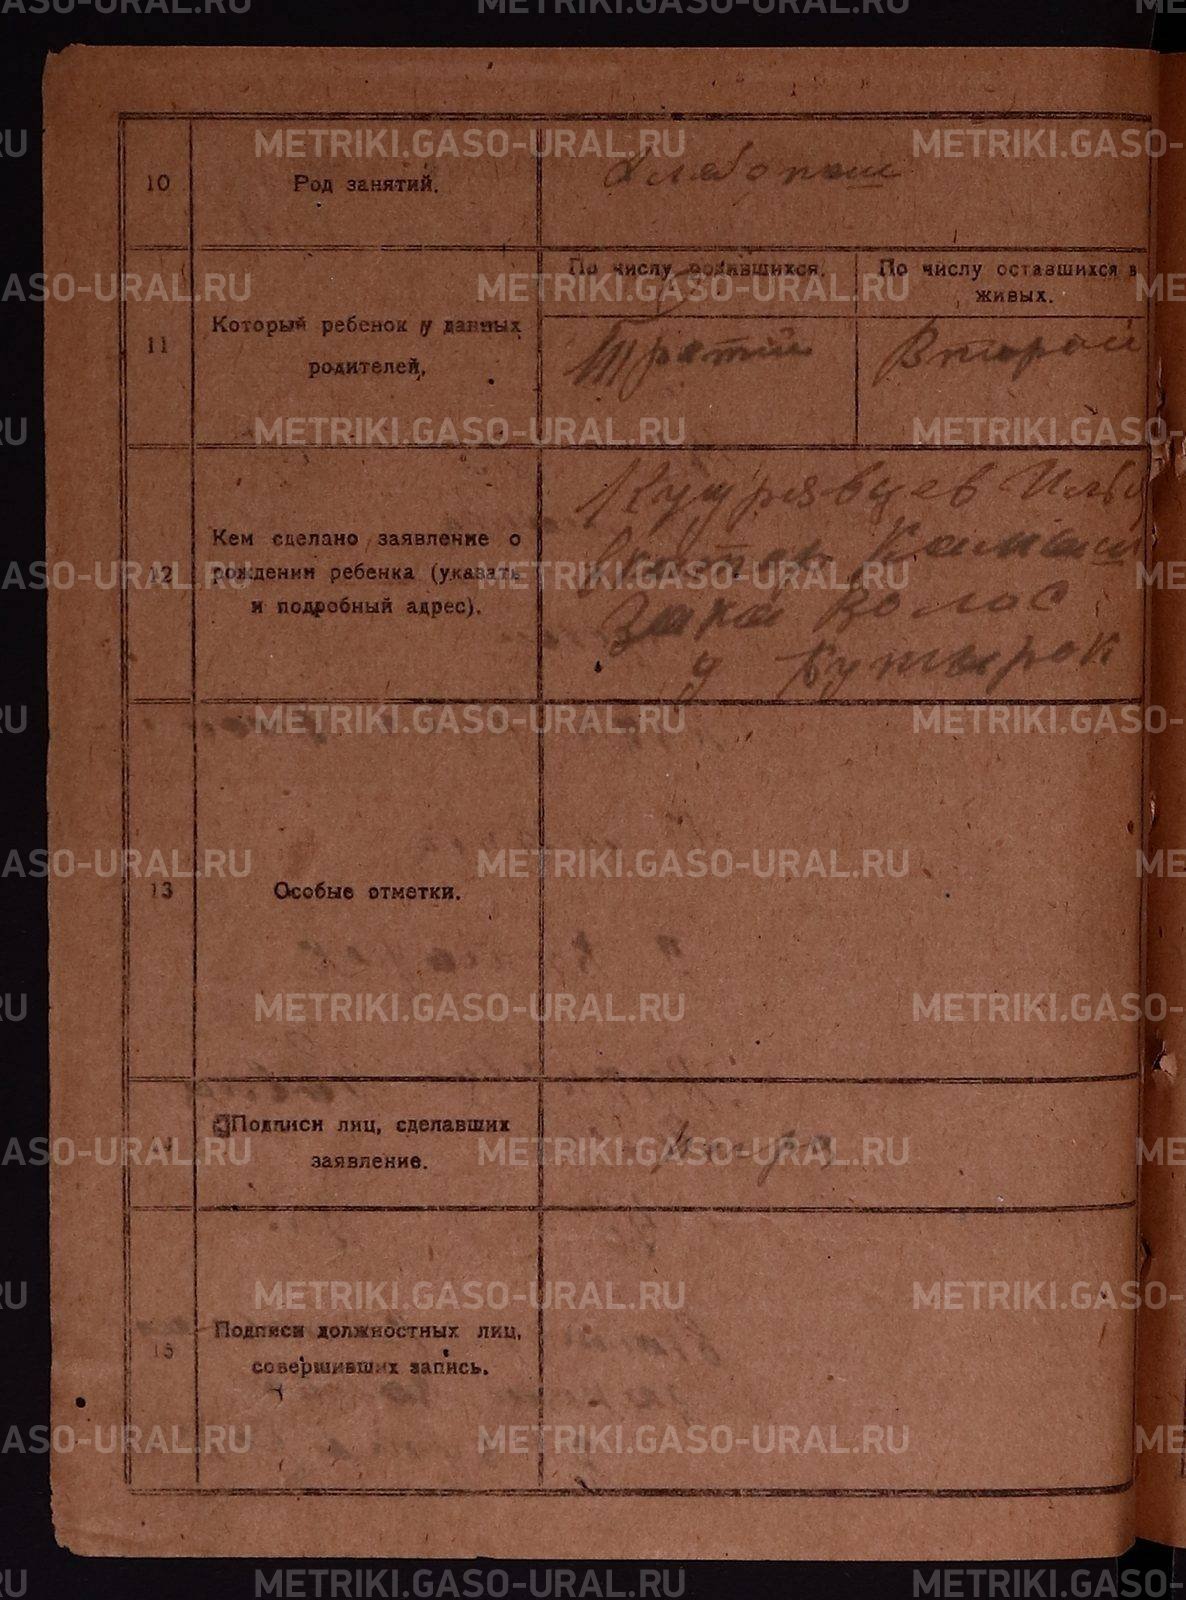 10
Род занятий.
Хлебопаш
11
Который ребенок у данных
родителей,
По числу родившихся.
По числу оставшихся в
живых.
Третий
Второй
12
Кем сделано заявление о
рождении ребенка (указать
и подробный адрес).
Кудрявцев Илья
Камыш
волос
Бутырок
13
Особые отметки.
Подписи лиц, сделавших
заявление.
15
Подписи должностных лиц,
совершивших запись.
METRIKI.GASO-URAL.RU